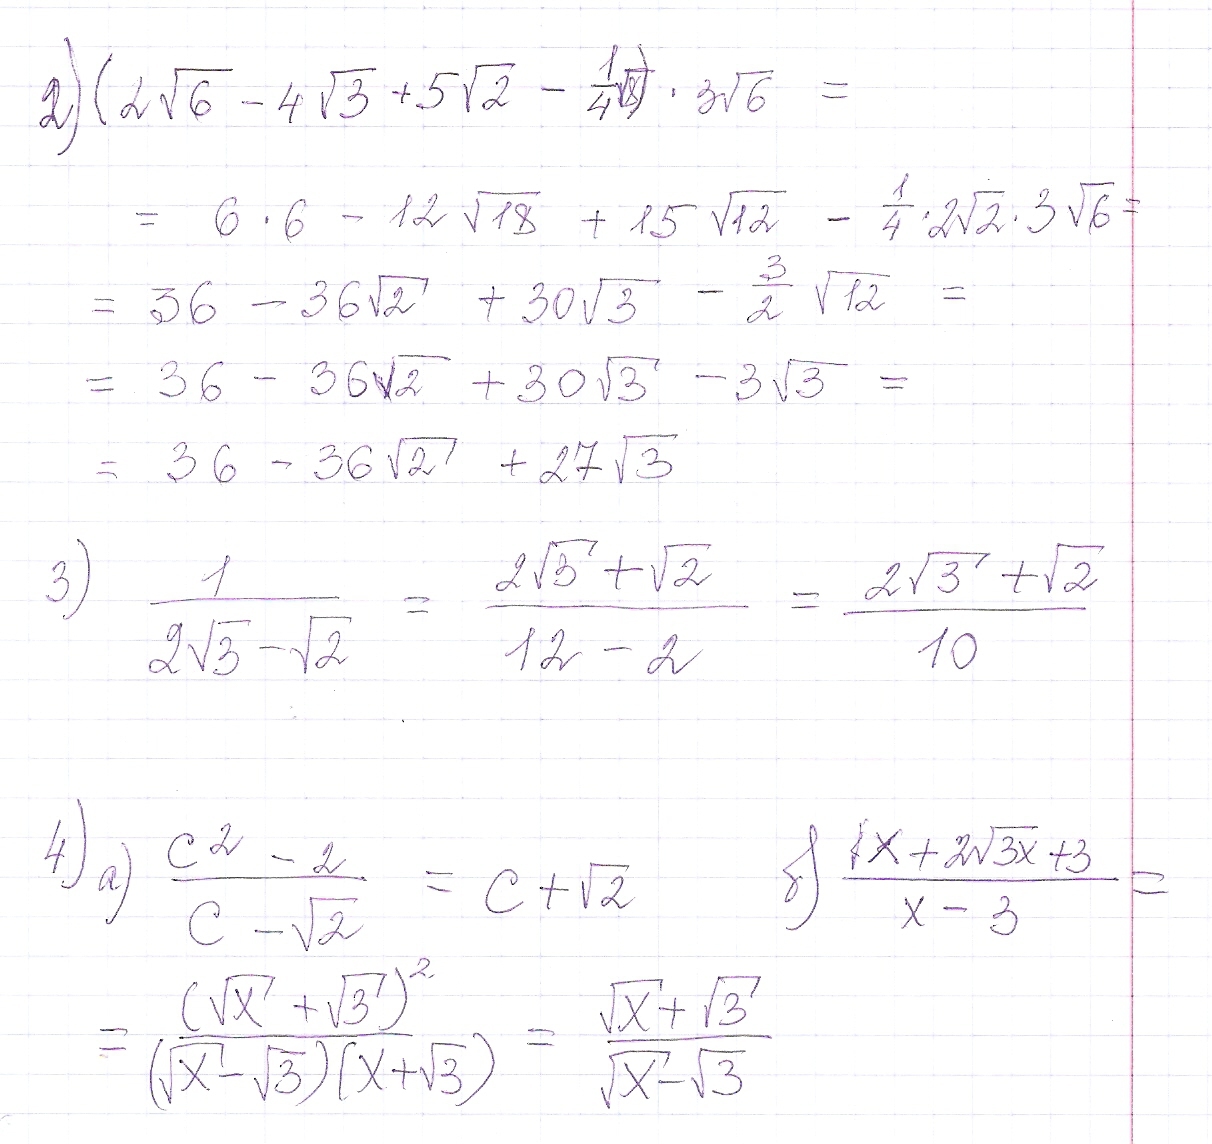 2) (2√6 - 4√3 + 5√2 - 1/4 √8) · 3√6 =
= 6 · 6 - 12 √18 + 15 √12 - 1/4 · 2√2 · 3√6 =
= 36 - 36√2 + 30√3 - 3/2 √12 =
= 36 - 36√2 + 30√3 - 3√3 =
= 36 - 36√2 + 27√3
3) 1/(2√3 - √2) = (2√3 + √2)/(12 - 2) = (2√3 + √2)/10
4) а) (c² - 2)/(c - √2) = c + √2 б) (x + 2√3x + 3)/(x - 3) =
= (√x + √3)²/((√x - √3)(x + √3)) = (√x + √3)/(√x - √3)